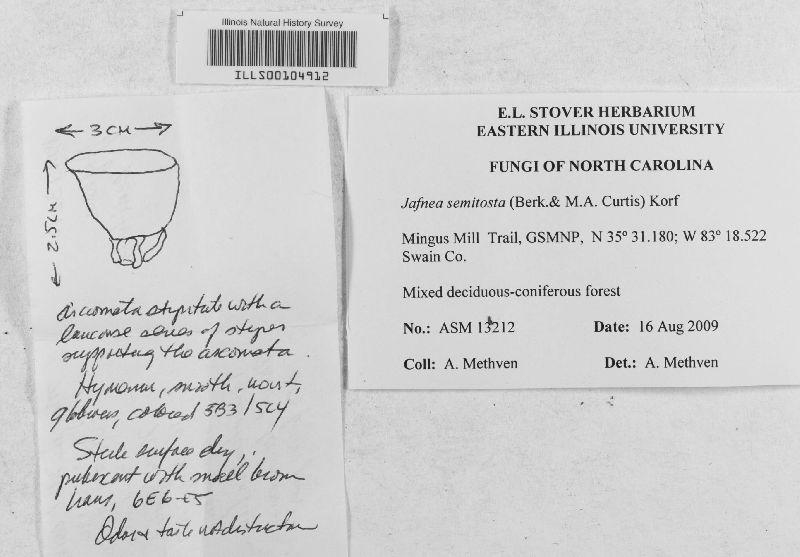 Illinois Natural History Survey
ILLS00104912
3 CM
2.5 CM
ascomata stipitate with a
series of stipes
supporting the ascomata.
Hymenium, smooth, moist,
glabrous, colored 5B3/5C4
Sterile surface dry,
pubescent with small brown
hairs, 6E6-E5
Odor & taste not distinctive
E.L. STOVER HERBARIUM
EASTERN ILLINOIS UNIVERSITY
FUNGI OF NORTH CAROLINA
Jafnea semitosta (Berk.& M.A. Curtis) Korf
Mingus Mill Trail, GSMNP, N 35º 31.180; W 83º 18.522
Swain Co.
Mixed deciduous-coniferous forest
No.: ASM 13212 Date: 16 Aug 2009
Coll: A. Methven Det.: A. Methven